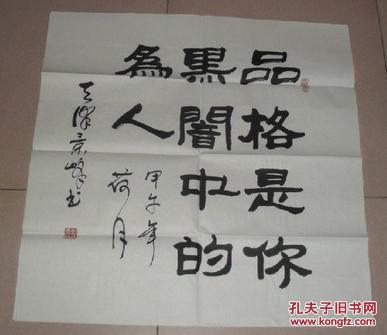 品格是你
黑闇中的
為人
甲午年
荷月
天津景峰书
孔夫子旧书网